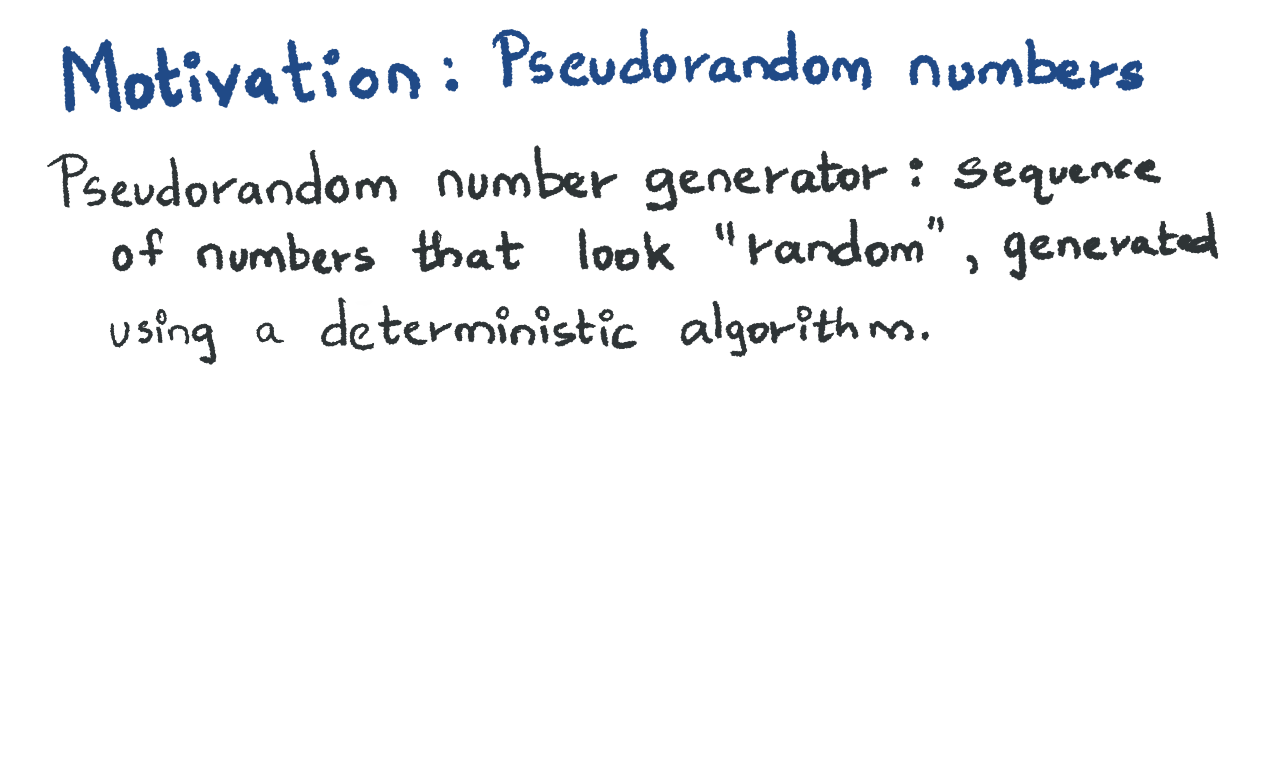 Motivation: Pseudorandom numbers
Pseudorandom number generator: sequence
of numbers that look "random", generated
using a deterministic algorithm.